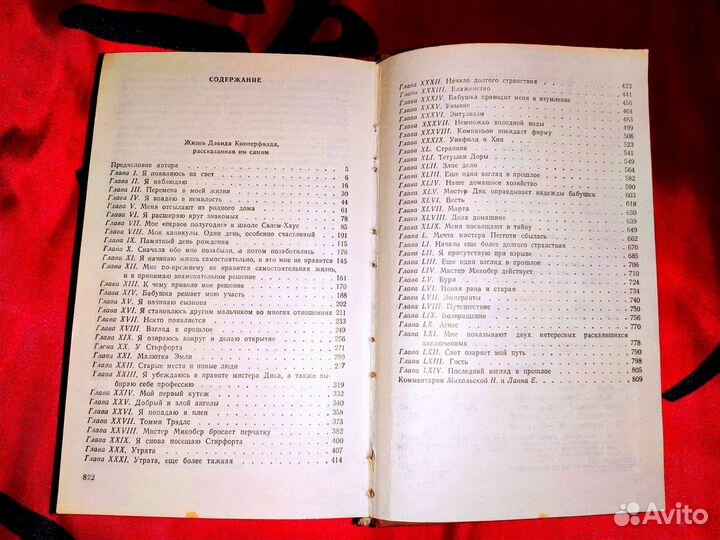 СОДЕРЖАНИЕ
Жизнь Дэвида Копперфилда,
рассказанная им самим
Предисловие автора 5
Глава I. Я появляюсь на свет 6
Глава II. Я наблюдаю 16
Глава III. Перемена в моей жизни 30
Глава IV. Я впадаю в немилость 44
Глава V. Меня отсылают из родного дома 61
Глава VI. Я расширяю круг знакомых 78
Глава VII. Мое «первое полугодие» в школе Сэлем-Хаус 85
Глава VIII. Мои каникулы. Один день, особенно счастливый 101
Глава IX. Памятный день рождения 115
Глава X. Сначала обо мне позабыли, а потом позаботились 126
Глава XI. Я начинаю жить самостоятельно, и это мне не нравится 145
Глава XII. Мне по-прежнему не нравится самостоятельная жизнь,
и я принимаю знаменательное решение 161
Глава XIII. К чему привело мое решение 170
Глава XIV. Бабушка решает мою участь 188
Глава XV. Я начинаю сызнова 202
Глава XVI. Я становлюсь другим мальчиком во многих отношениях 211
Глава XVII. Некто появляется 233
Глава XVIII. Взгляд в прошлое 249
Глава XIX. Я озираюсь вокруг и делаю открытие 256
Глава XX. У Стирфорта 271
Глава XXI. Малютка Эмли 280
Глава XXII. Старые места и новые люди
Глава XXIII. Я убеждаюсь в правоте мистера Дика, а также вы-
бираю себе профессию 319
Глава XXIV. Мой первый кутеж 332
Глава XXV. Добрый и злой ангелы 340
Глава XXVI. Я попадаю в плен 358
Глава XXVII. Томми Трэдлс 374
Глава XXVIII. Мистер Микобер бросает перчатку 382
Глава XXIX. Я снова посещаю Стирфорта 400
Глава XXX. Утрата 407
Глава XXXI. Утрата, еще более тяжкая 414
822
Глава XXXII. Начало долгого странствия 423
Глава XXXIII. Блаженство 441
Глава XXXIV. Бабушка приводит меня в изумление 456
Глава XXXV. Уныние 464
Глава XXXVI. Энтузиазм
Глава XXXVII. Немножко холодной воды
Глава XXXVIII. Компаньон покидает фирму 506
Глава XXXIX. Уикфилд и Хип 523
Глава XL. Странник 541
Глава XLI. Тетушки Доры 549
Глава XLII. Злое дело 564
Глава XLIII. Еще один взгляд в прошлое
Глава XLIV. Наше домашнее хозяйство
Глава XLV. Мистер Дик оправдывает надежды бабушки 603
Глава XLVI. Весть 618
Глава XLVII. Марта 630
Глава XLVIII. Дела домашние 639
Глава XLIX. Меня посвящают в тайну
Глава L. Мечта мистера Пегготи сбылась 660
Глава LI. Начало еще более долгого странствия 670
Глава LII. Я присутствую при взрыве 685
Глава LIII. Еще один взгляд в прошлое 706
Глава LIV. Мистер Микобер действует
Глава LV. Буря 724
Глава LVI. Новая рана и старая
Глава LVII. Эмигранты 740
Глава LVIII. Путешествие 750
Глава LIX. Возвращение 756
Глава LX. Агнес 770
Глава LXI. Мне показывают двух интересных раскаявшихся
заключенных 778
Глава LXII. Свет озаряет мой путь
Глава LXIII. Гость 798
Глава LXIV. Последний взгляд в прошлое 805
Комментарии Михальской Н. и Ланна Е. 809
Avito